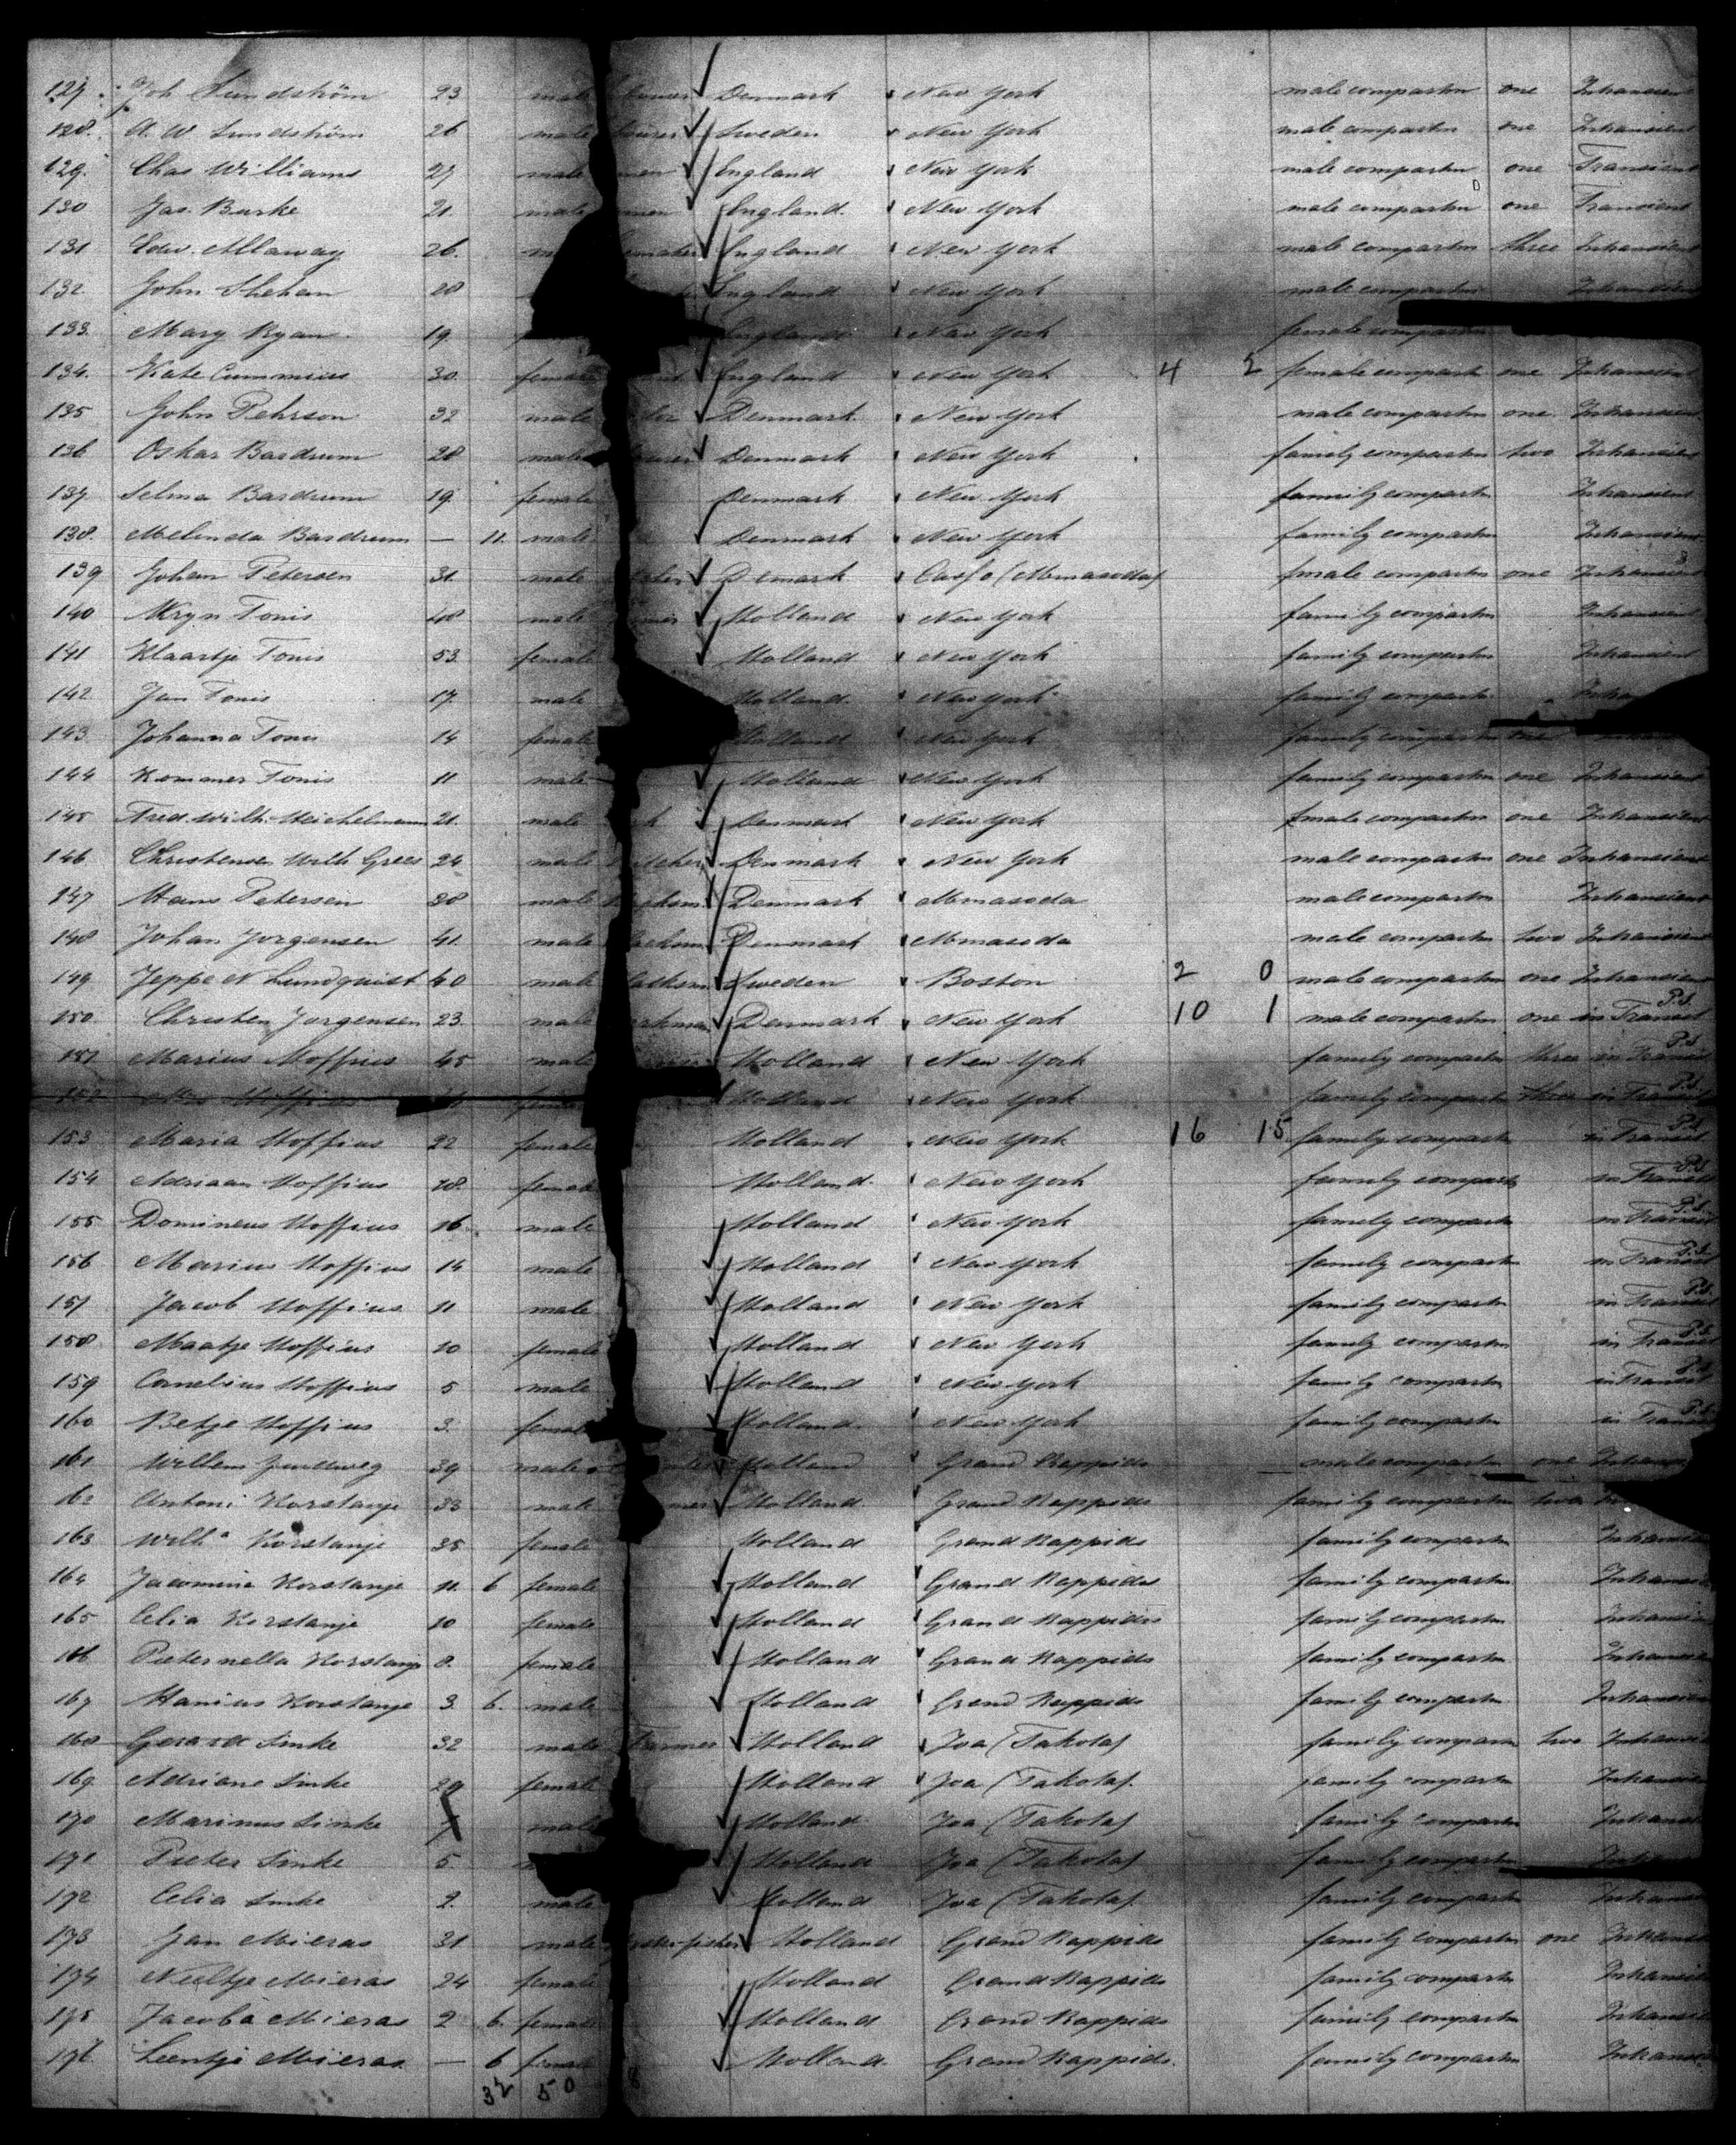 127. Joh Sundström 23 male Denmark New York male compartm one Intransient
128. A. W Sundström 26 male Sweden New York male compartm one Intransient
129. Chas Williams 27 male England New York male compartm one Transient
130 Jas. Burke 21. male England. New York male compartm one Transient
131 Edw. Allaway 26. England New York male compartm three Intransient
132. John Shehan 28 England New York male compartm Intransient
133. Mary Ryan. 19. England New York female compartm
134. Kate Cummins 30. female England New York 4 2 female compartm one Intransient
135 John Pehrson 32 male Denmark. New York male compartm one Intransient
136 Oskar Bardrum 28 male Denmark New York family compartm two Intransient
137 Selma Bardrum 19. female Denmark New York family compartm Intransient
138. Melinda Bardrum — 11. male Denmark New York family compartm Intransient
139 Johan Petersen 31. male Demark male compartm one Intransient
140 Kryn Tonis 48 male Holland New York family compartm Intransient
141 Klaartje Tonis 53. female Holland New York family compartm Intransient
142 Jan Tonis 17. male Holland. New York family compartm
143. Johanna Tonis 14 female Holland New York family compartm one
144 Kommer Tonis 11 male Holland New York family compartm one Intransient
145 Fred. Wilh. Meichelmann 21. male Denmark New York male compartm one Intransient
146 Christensen Wilh Grees 24 male Denmark New York male compartm one Intransient
147 Hans Petersen 38 male Denmark Mmasoda male compartm Intransient
148 Johan Jorgensen 41. male Denmark Mmasoda male compartm two Intransient
149 Jeppe N Lundquist 40 male Sweden Boston 2 0 male compartm one Intransient
150. Christen Jorgensen 23. male Denmark New York 10 1 male compartm one in Transit P.s.
151 Marius Hoffius 45 male Holland New York family compartm three in Transit P.s.
152 Holland New York family compartm three in Transit P.s.
153 Maria Hoffius 22 female Holland New York 16 15 family compartm in Transit P.s.
154 Adriaan Hoffius 18. female Holland. New York family compartm in Transit P.s.
155 Domineus Hoffius 16. male Holland New York family compartm in Transit P.s.
156 Marius Hoffius 14 male Holland New York family compartm in Transit P.s.
157 Jacob Hoffius 11 male Holland New York family compartm in Transit P.s.
158. Maatje Hoffius 10 female Holland New York family compartm in Transit P.s.
159 Cornelius Hoffius 5 male Holland New York family compartm in Transit P.s.
160 Betje Hoffius 3. female Holland. New York family compartm in Transit P.s.
161 Willem 39 male Holland Grand Rappids male compartm one
162 Antoni Korstanje 33 male Holland Grand Rappids family compartm two
163 Wilha Korstanje 35 female Holland Grand Rappids family compartm
164 Jacomina Korstanje 11. 6 female Holland Grand Rappids family compartm
165 Celia Korstanje 10 female Holland Grand Rappids family compartm
166 Pieternella Korstanje 8. female Holland Grand Rappids family compartm
167 Marius Korstanje 3. 6. male Holland Grand Rappids family compartm
168 Gerard Sinke 32 male Farmer Holland Joa (Takota) family compartm two
169. Adriane Sinke 29 female Holland Joa (Takota). family compartm
170 Marinus Sinke male Holland Joa (Takota) family compartm
171 Pieter Sinke 5. Holland Joa (Takota) family compartm
172 Celia Sinke 2. male Holland Joa (Takota). family compartm
173 Jan Mieras 31 male Holland Grand Rappids family compartm one
174 Neeltje Mieras 24 female Holland Grand Rappids family compartm
175 Jacoba Mieras 2 6. female Holland Grand Rappids family compartm
176 Leentje Mieras — 6 female Holland. Grand Rappids. family compartm
32 50 8